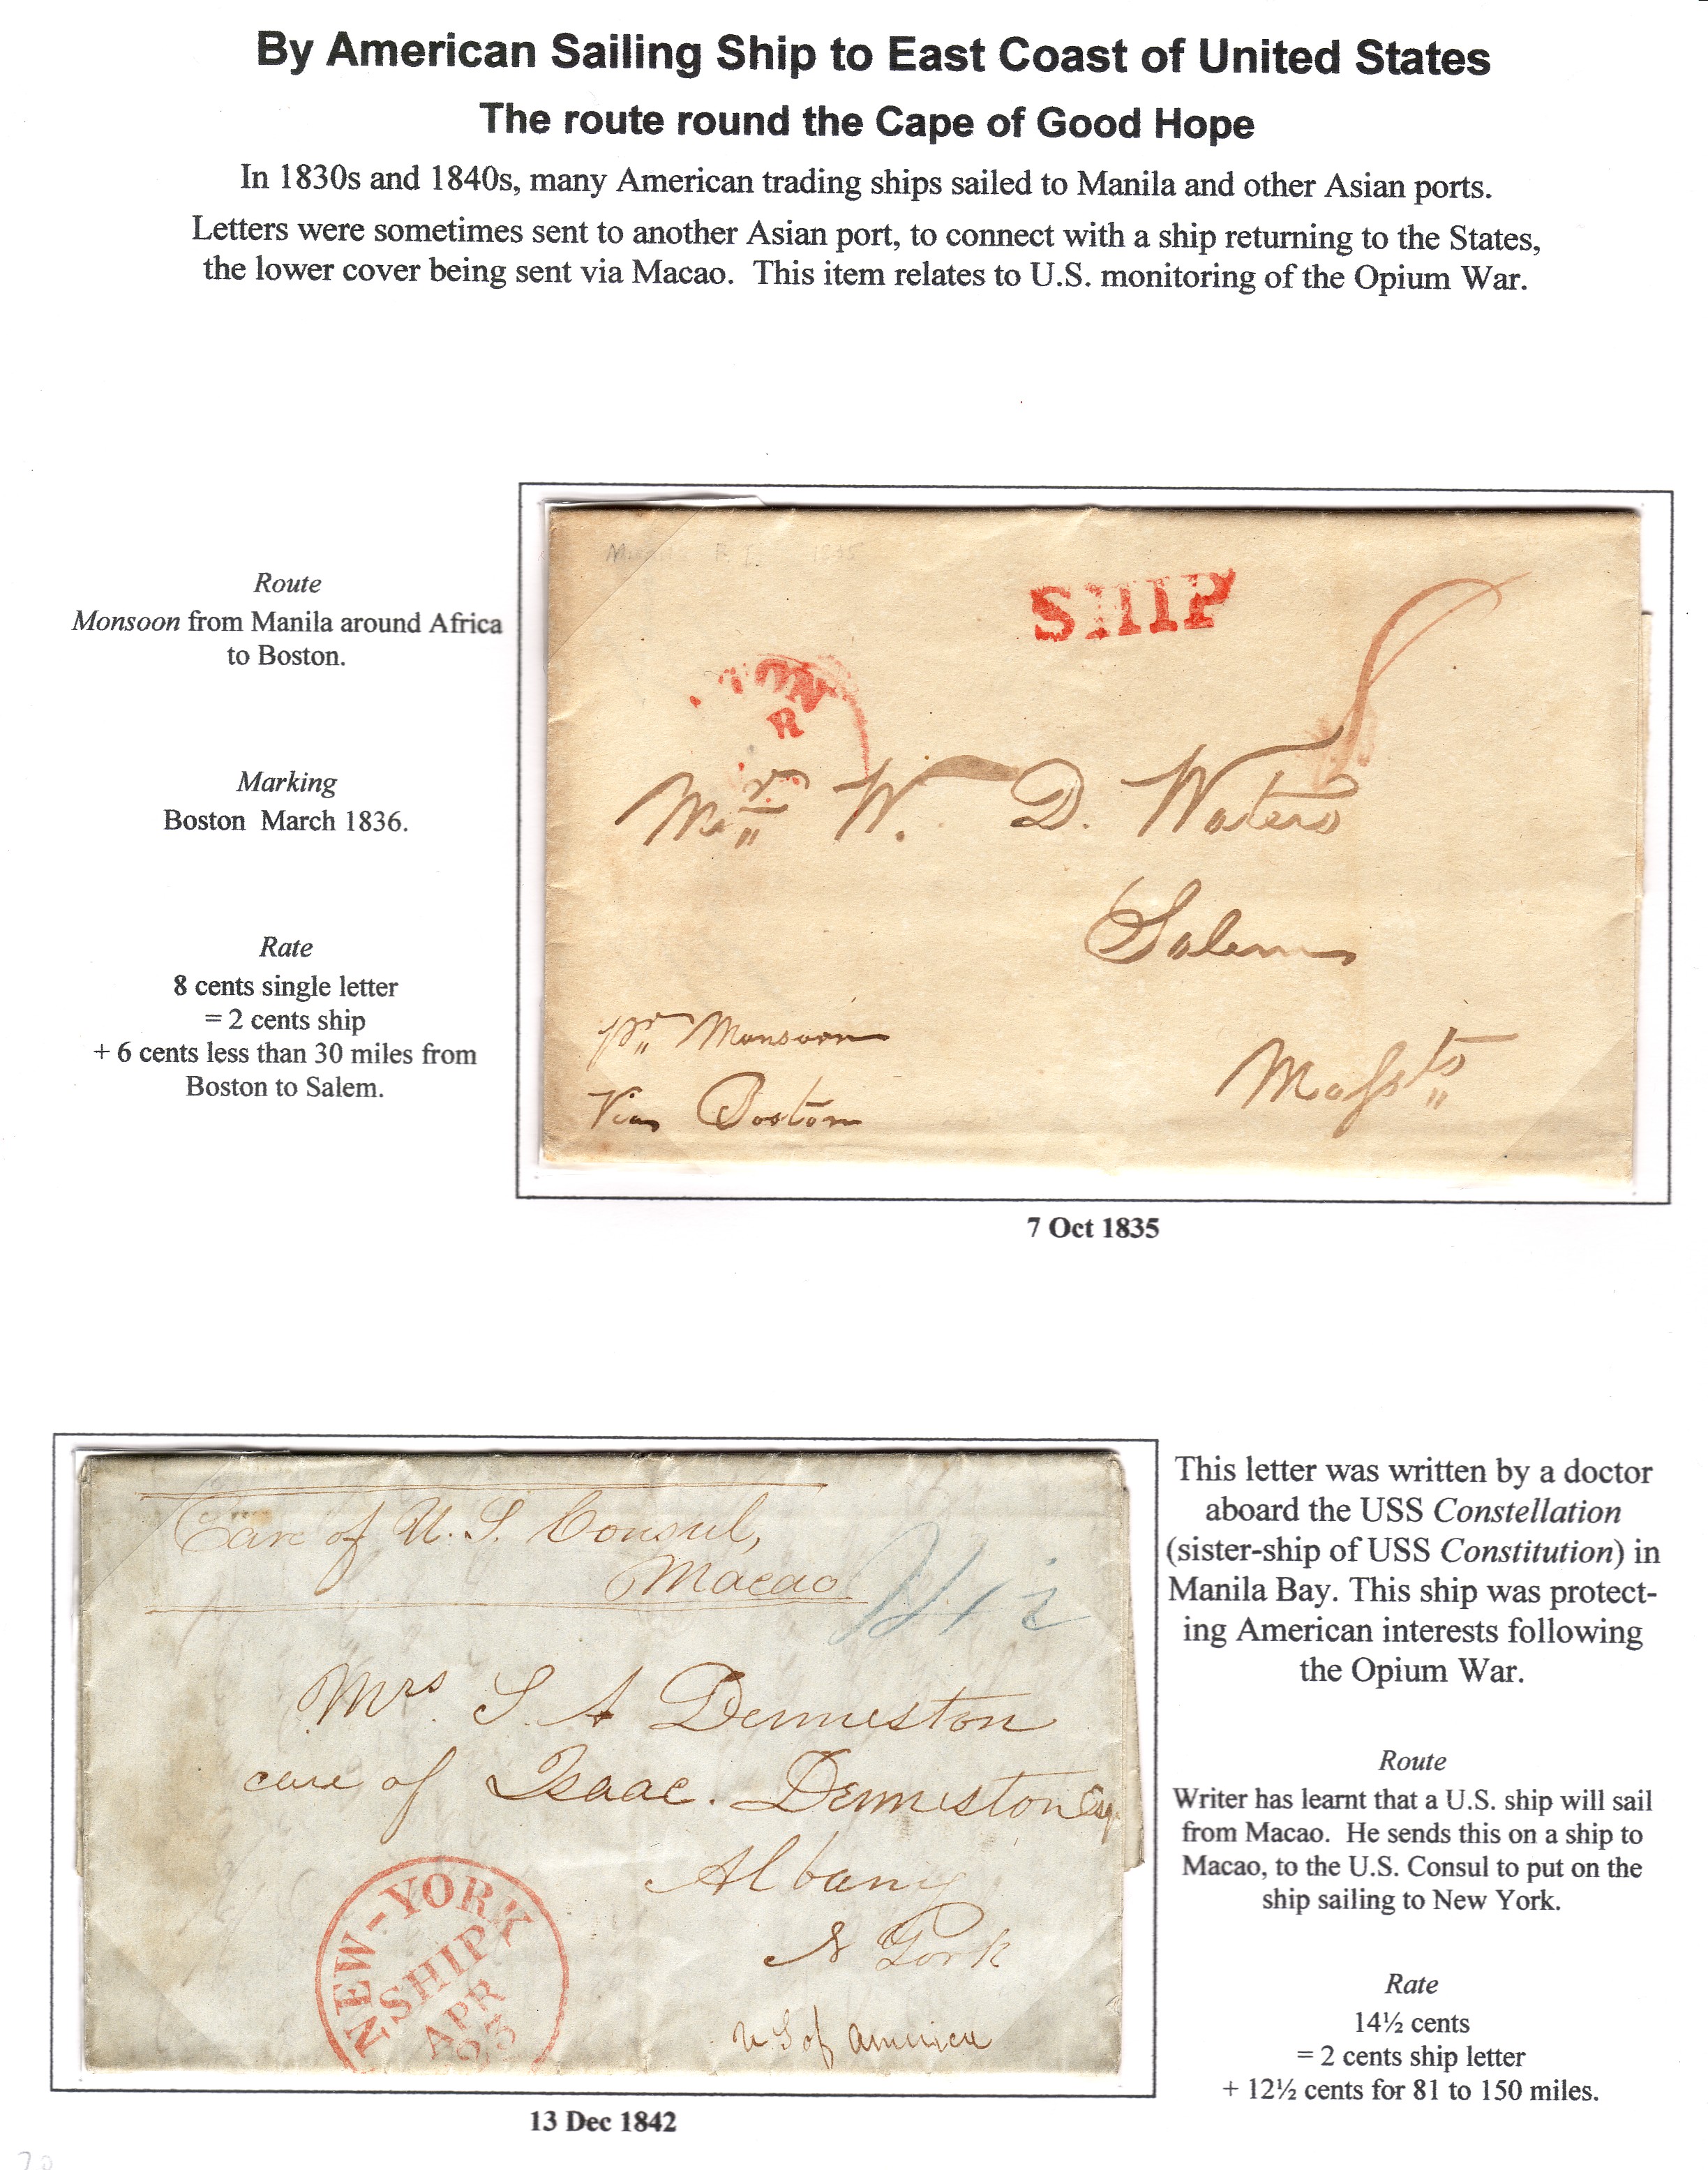 By American Sailing Ship to East Coast of United States
The route round the Cape of Good Hope
In 1830s and 1840s, many American trading ships sailed to Manila and other Asian ports.
Letters were sometimes sent to another Asian port, to connect with a ship returning to the States,
the lower cover being sent via Macao. This item relates to U.S. monitoring of the Opium War.
Route
Monsoon from Manila around Africa
to Boston.
Marking
Boston March 1836.
Rate
8 cents single letter
= 2 cents ship
+ 6 cents less than 30 miles from
Boston to Salem.
1835
SHIP
TON
R
Mr W. D. Waters
Salem
Massts
pr Monsoon
Via Boston
7 Oct 1835
Care of U. S. Consul,
Macao
Mrs. S. A Denniston
care of Isaac. Denniston Esq
Albany
N York
U S of America
NEW-YORK
SHIP
APR
23
13 Dec 1842
This letter was written by a doctor
aboard the USS Constellation
(sister-ship of USS Constitution) in
Manila Bay. This ship was protect-
ing American interests following
the Opium War.
Route
Writer has learnt that a U.S. ship will sail
from Macao. He sends this on a ship to
Macao, to the U.S. Consul to put on the
ship sailing to New York.
Rate
14½ cents
= 2 cents ship letter
+ 12½ cents for 81 to 150 miles.